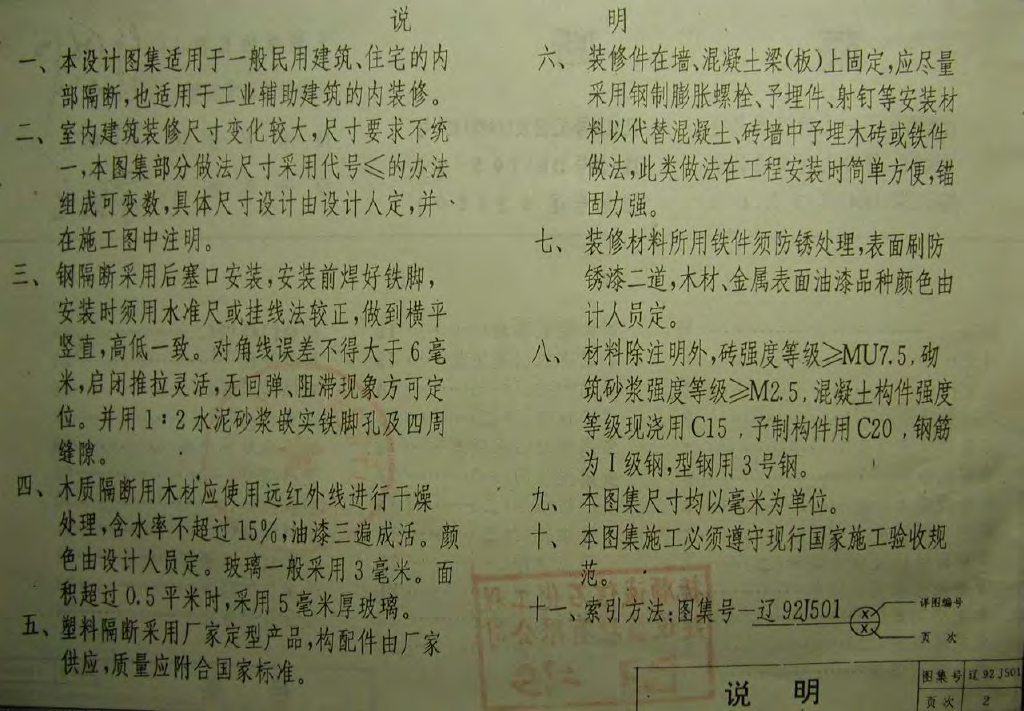 说 明
一、本设计图集适用于一般民用建筑、住宅的内
部隔断,也适用于工业辅助建筑的内装修。
二、室内建筑装修尺寸变化较大,尺寸要求不统
一,本图集部分做法尺寸采用代号≤的办法
组成可变数,具体尺寸设计由设计人定,并
在施工图中注明。
三、钢隔断采用后塞口安装,安装前焊好铁脚,
安装时须用水准尺或挂线法较正,做到横平
竖直,高低一致。对角线误差不得大于6毫
米,启闭推拉灵活,无回弹、阻滞现象方可定
位。并用1:2水泥砂浆嵌实铁脚孔及四周
缝隙。
四、木质隔断用木材应使用远红外线进行干燥
处理,含水率不超过15%,油漆三遍成活。颜
色由设计人员定。玻璃一般采用3毫米。面
积超过0.5平米时,采用5毫米厚玻璃。
五、塑料隔断采用厂家定型产品,构配件由厂家
供应,质量应附合国家标准。
六、装修件在墙、混凝土梁(板)上固定,应尽量
采用钢制膨胀螺栓、予埋件、射钉等安装材
料以代替混凝土、砖墙中予埋木砖或铁件
做法,此类做法在工程安装时简单方便,锚
固力强。
七、装修材料所用铁件须防锈处理,表面刷防
锈漆二道,木材、金属表面油漆品种颜色由
计人员定。
八、材料除注明外,砖强度等级≥MU7.5,砌
筑砂浆强度等级≥M2.5,混凝土构件强度
等级现浇用C15,予制构件用C20,钢筋
为I级钢,型钢用3号钢。
九、本图集尺寸均以毫米为单位。
十、本图集施工必须遵守现行国家施工验收规
范。
十一、索引方法:图集号—辽92J501
详图编号
X
X
页次
说 明
图集号 辽92J501
页次 2